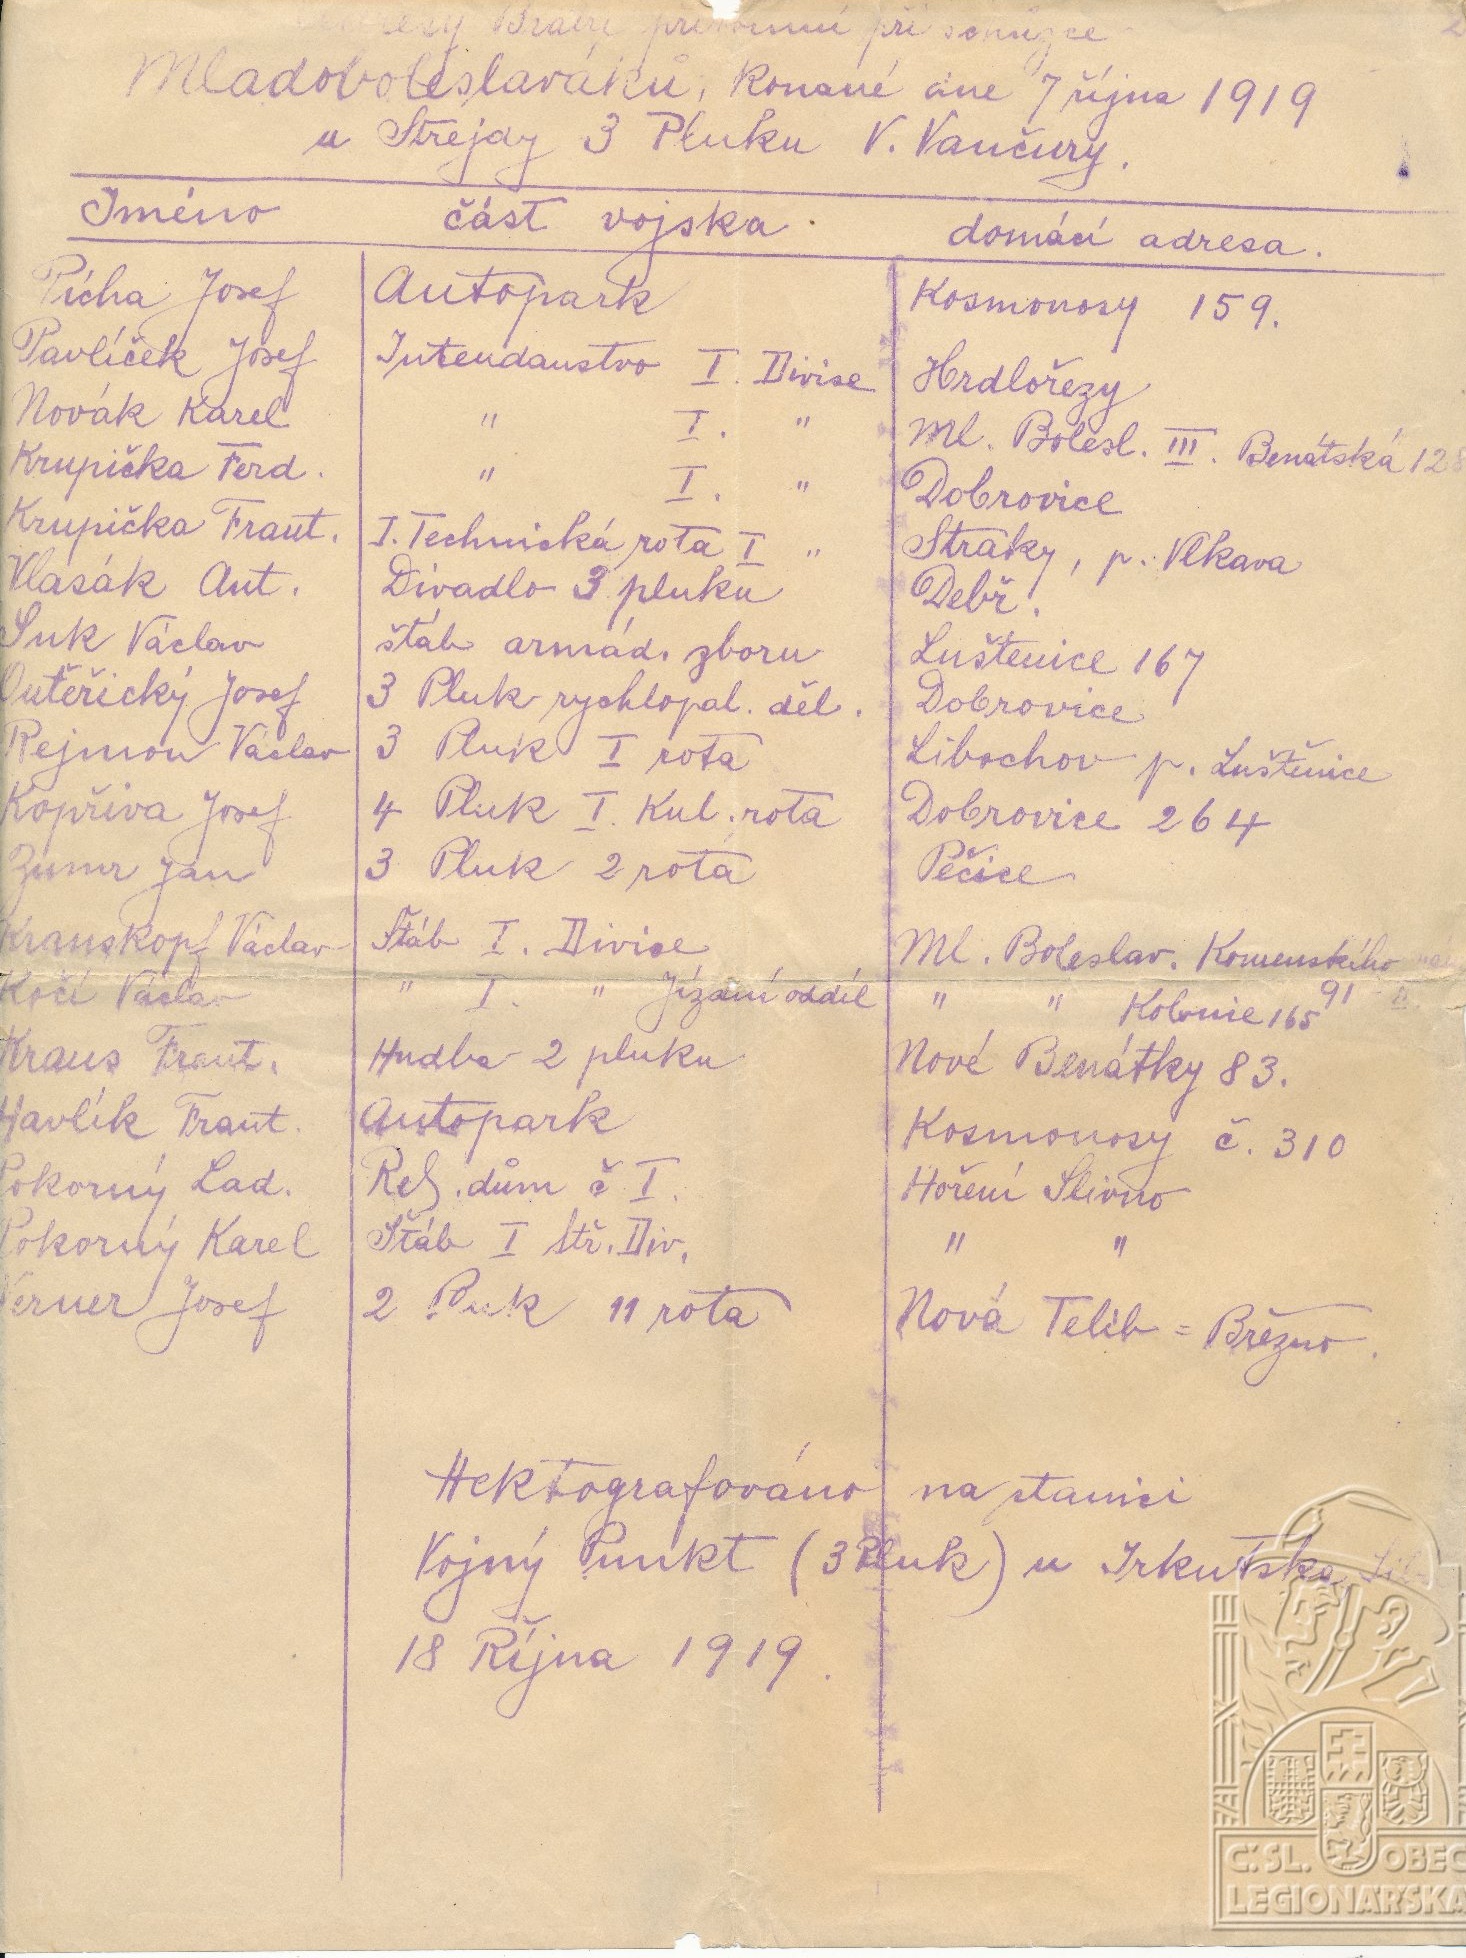 Bratří přítomní při schůzce
Mladoboleslaváků, konané dne 7 října 1919
u Strejdy 3 Pluku V. Vančury.
Jméno část vojska domácí adresa.
Pícha Josef Autopark Kosmonosy 159.
Pavlíček Josef Intendanstvo I. Divise Hrdlořezy
Novák Karel " I. " Ml. Bolesl. III. Benátská 128
Krupička Ferd. " I. " Dobrovice
Krupička Frant. I. Technická rota I " Straky, p. Vlkava
Vlasák Ant. Divadlo 3 pluku Debř.
Suk Václav štáb armád. zboru Luštenice 167
Outěřický Josef 3 Pluk rychlopal. děl. Dobrovice
Rejmon Václav 3 Pluk I rota Libochov p. Luštěnice
Kopřiva Josef 4 Pluk I. Kul. rota Dobrovice 264
Zumr Jan 3 Pluk 2 rota Pěčice
Krauskopf Václav Štáb I. Divise Ml. Boleslav. Komenského
Kočí Václav " I. " Jízdní oddíl " " Kolonie 165 91
Kraus Frant. Hudba 2 pluku Nové Benátky 83.
Havlík Frant. Autopark Kosmonosy č. 310
Pokorný Lad. Rel. dům č I. Hoření Slivno
Pokorný Karel Štáb I Stř. Div. " "
Verner Josef 2 Pluk 11 rota Nová Telib = Březno.
Hektografováno na stanici
Vojný Punkt (3 Pluk) u Irkutska Sib
18 Října 1919.
Č.SL. OBEC
LEGIONÁŘSKÁ